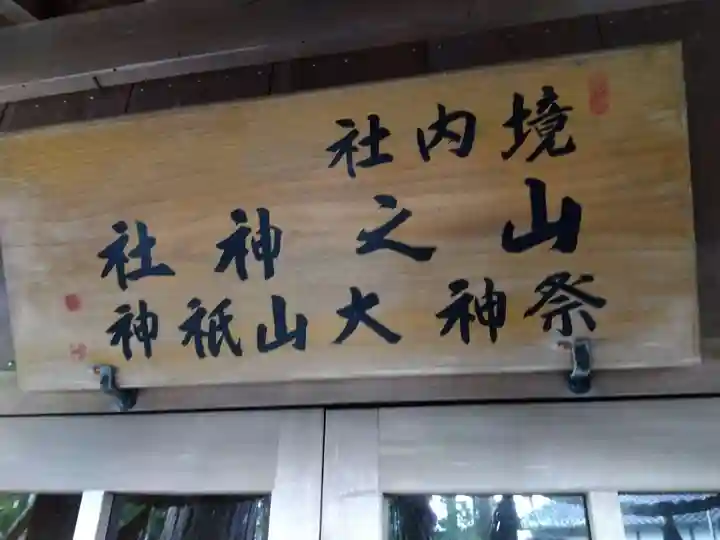 境内社
山之神社
祭神 大山祇神